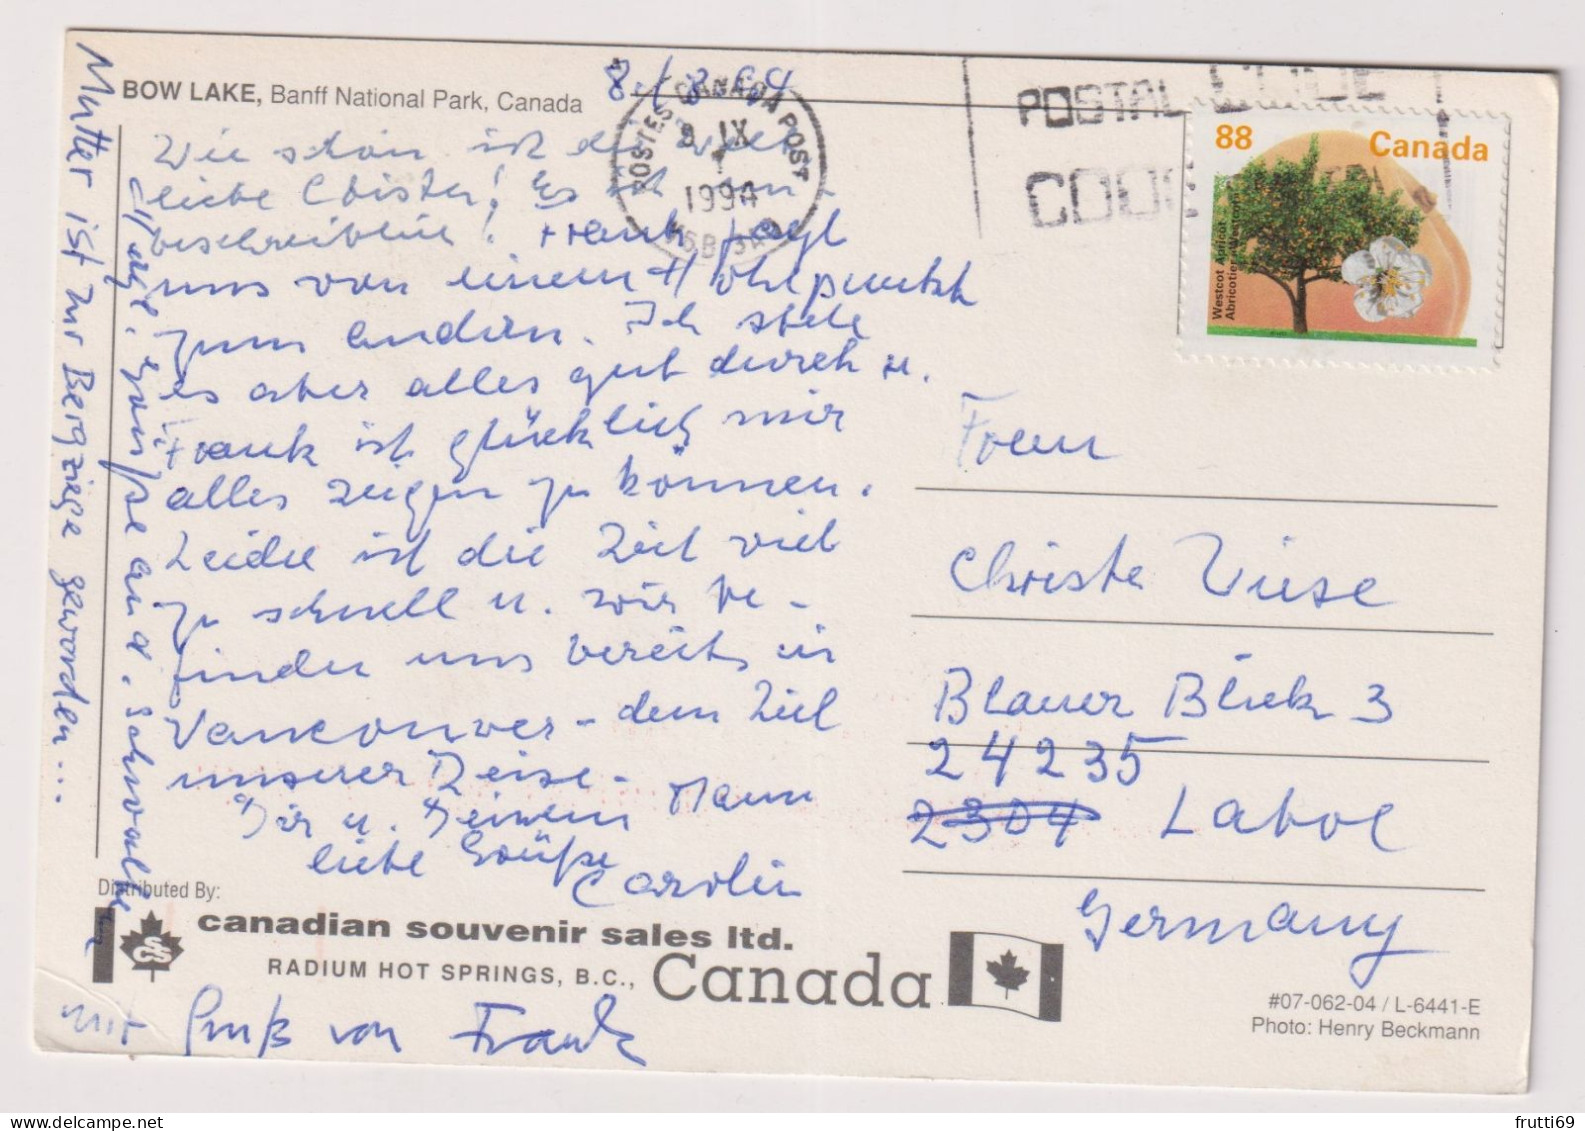 BOW LAKE, Banff National Park, Canada
Wie schön ist die Welt
liebe Christa! Es ist un-
beschreiblich! Frank jagt
uns von einem Höhepunkt
zum andern. Ich stehe
es aber alles gut durch u.
Frank ist glücklich mir
alles zeigen zu können.
Leider ist die Zeit viel
zu schnell u. wir be-
finden uns bereits in
Vancouver - dem Ziel
unserer Reise -
Dir u. Deinem Mann
liebe Grüße
Carolin
Mutter ist zur Bergziege geworden...
Grüße and. Schwalbe
mit Gruß von Frank
POSTES CANADA POST
9 IX
1994
V5B 3A0
POSTAL CODE
88
Canada
Westcot Apricot
Abricotier Westcot
Frau
Christa Viese
Blauer Blick 3
24235
2304 Laboe
Germany
Distributed By:
SCS
canadian souvenir sales ltd.
RADIUM HOT SPRINGS, B.C., Canada
#07-062-04 / L-6441-E
Photo: Henry Beckmann
frutti69